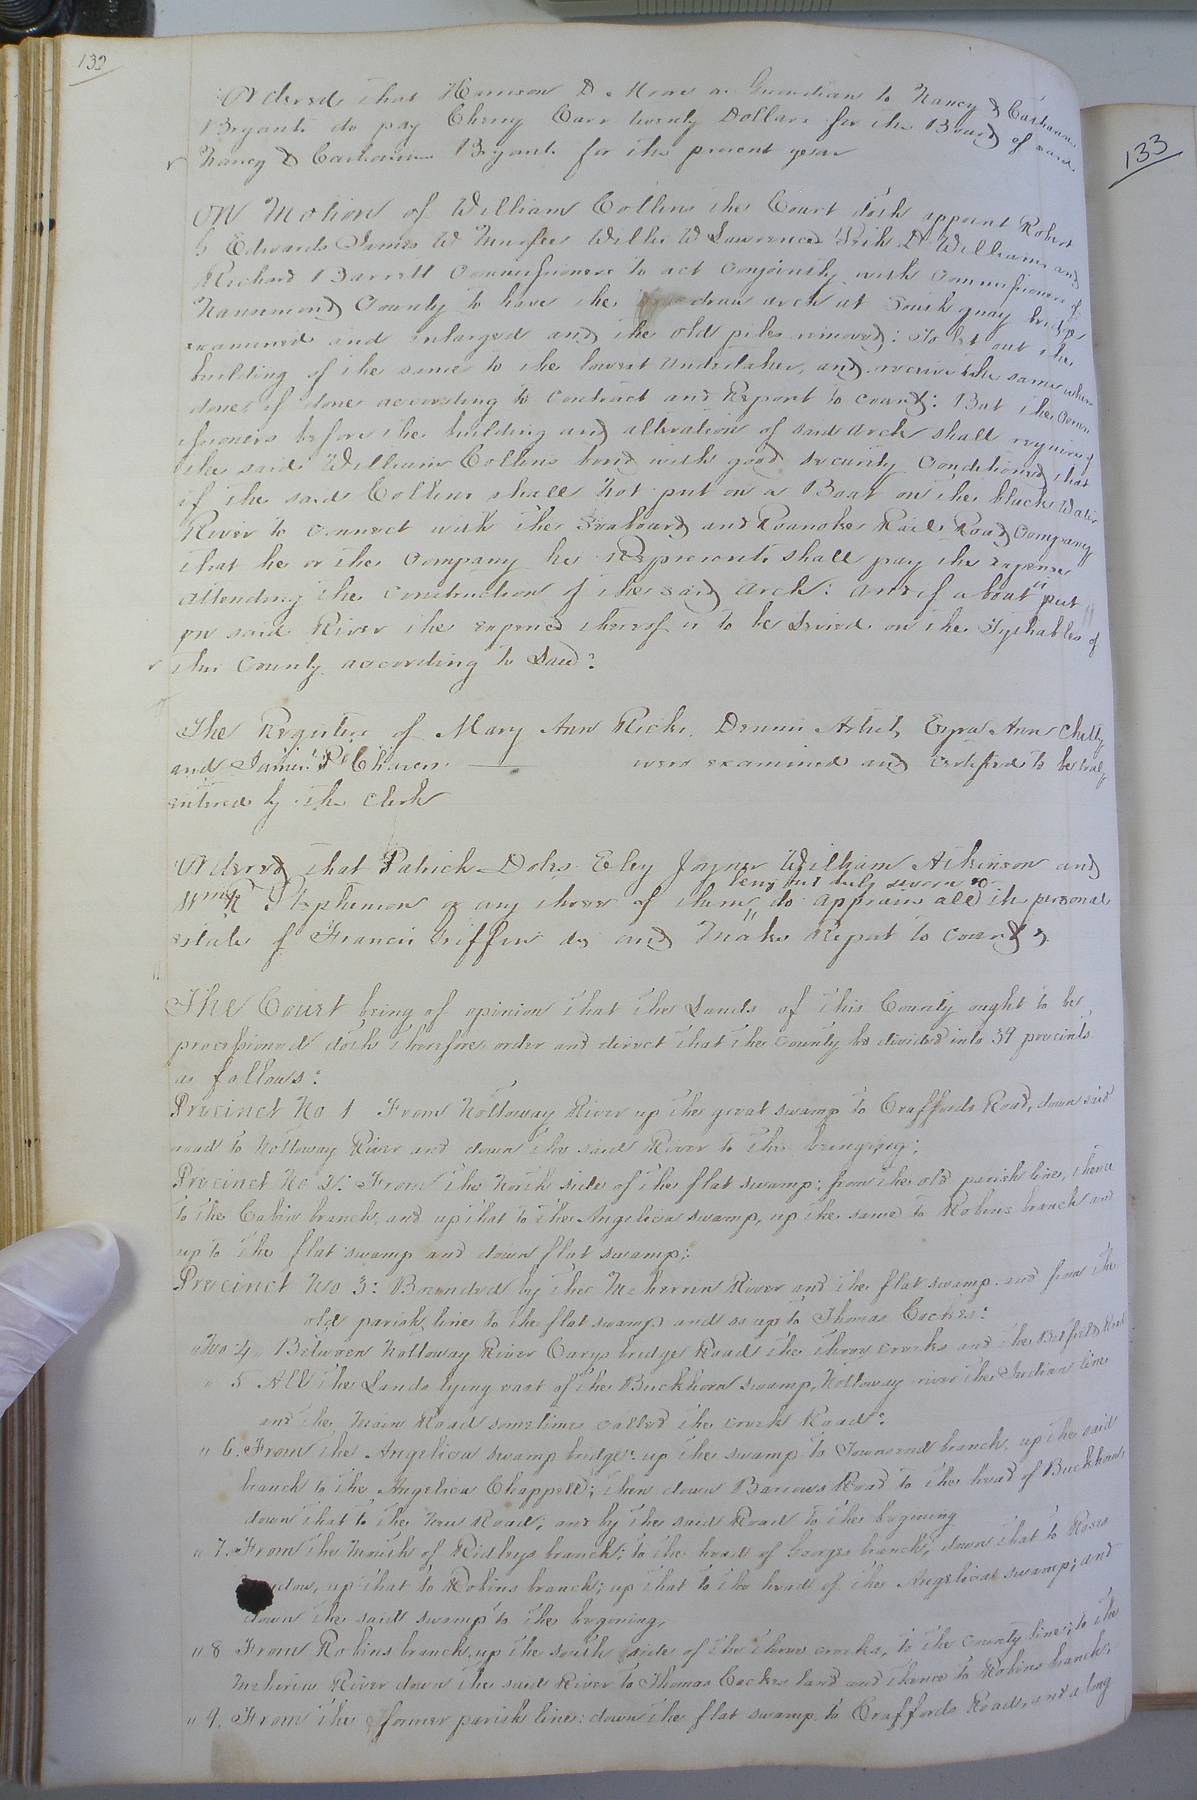 132
133
Ordered that Harrison D. Moore as Guardian to Nancy & Catharine
Bryant do pay Cherry Carr twenty Dollars for the Board of said
Nancy & Catharine Bryant for the present year
On Motion of William Collins the Court doth appoint Robert
S Edwards James W Murfee Willie W Lawrence D Williams and
Richard Barrett Commissioners to act conjointly with Commissioners of
Nansemond County to have the draw arch at South quay bridge
examined and enlarged and the old piles removed: To let out the
building of the same to the lowest undertaker, and receive the same when
done if done according to contract and Report to court: But the Comm
issioners before the building and alteration of said arch shall require of
the said William Collins bond with good security conditioned that
if the said Collins shall not put on a Boat on the black Water
River to connect with the Seaboard and Roanoke Rail Road Company
that he or the company he represents shall pay the expense
attending the construction of the said arch: and if a boat is put
on said River the expence thereof is to be levied on the Tythables of
this County according to Law:
The Registers of Mary Ann Ricks, Dennis Artist, Ezra Ann Chitty
and James P Chavers were examined and certified to be truly
entered by the Clerk
Ordered that Patrick Doles Eley Joyner William Atkinson and
Wm R Stephenson or any three of them being first duly sworn do appraise all the personal
estate of Francis Griffin decd and make report to court
The Court being of opinion that the Lands of this County ought to be
processioned doth therefore order and direct that the county be divided into 39 precincts
as follows:
Precinct No 1 From Nottoway River up the great swamp to Craffords Road, down said
road to Nottoway River and down the said River to the beginging;
Precinct No 2: From the North side of the flat swamp; from the old parish line, thence
to the Cabin branch, and up that to the Angelica swamp, up the same to Robins branch and
up to the flat swamp and down flat swamp;
Precinct No 3: Bounded by the Meherrin River and the flat swamp and from the
old parish line to the flat swamp and so up to Thomas Cockes:
" No 4 Between Nottoway River Carys bridge Road the three creeks and the Belfield Road
" 5 All the Lands lying east of the Buckhorn swamp, Nottoway river the Indian line
and the Main Road sometimes called the creek Road:
" 6. From the Angelica swamp bridge: up the swamp to Townsend branch, up the said
branch to the Angelica Chappell; then down Barrows Road to the head of Buckhorn,
down that to the New Road; and by the said Road to the begining
" 7. From the mouth of Ridleys branch; to the head of Georges branch; down that to Roses
up that to Robins branch; up that to the head of the Angelica swamp; and
down the said swamp to the begining,
" 8 From Robins branch up the south side of the three creeks, to the county line; to the
Meherin River down the said River to Thomas Cockes land and thence to Robins branch;
" 9. From the former parish line: down the flat swamp to Craffords Road, and along